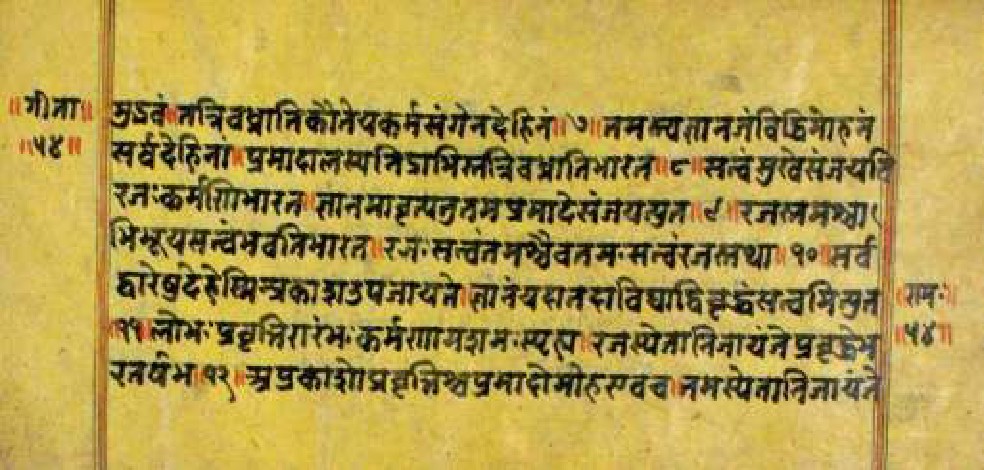 ॥गीता॥
॥५४॥
मुऽवं॥तन्निबध्नातिकौंतेयकर्मसंगेनदेहिनं॥७॥तमस्त्वज्ञानजंविद्धिमोहनं
सर्वदेहिनां॥प्रमादालस्यनिद्राभिस्तन्निबध्नातिभारत॥८॥सत्वंसुखेसंजयति
रजःकर्मणिभारत॥ज्ञानमावृत्यतुतमःप्रमादेसंजयत्युत॥९॥रजस्तमश्चा
भिभूयसत्वंभवतिभारत॥रजःसत्वंतमश्चैवतमःसत्वंरजस्तथा॥१०॥सर्व
द्वारेषुदेहेस्मिन्प्रकाशउपजायते॥ज्ञानंयदातदाविद्याद्विवृद्धंसत्वमित्युत
॥११॥लोभःप्रवृत्तिरारंभःकर्मणामशमःस्पृहा॥रजस्येतानिजायंतेप्रवृद्धेभ
रतर्षभ॥१२॥अप्रकाशोप्रवृत्तिश्चप्रमादोमोहएवच॥तमस्येतानिजायंते
॥रामः॥
॥५४॥